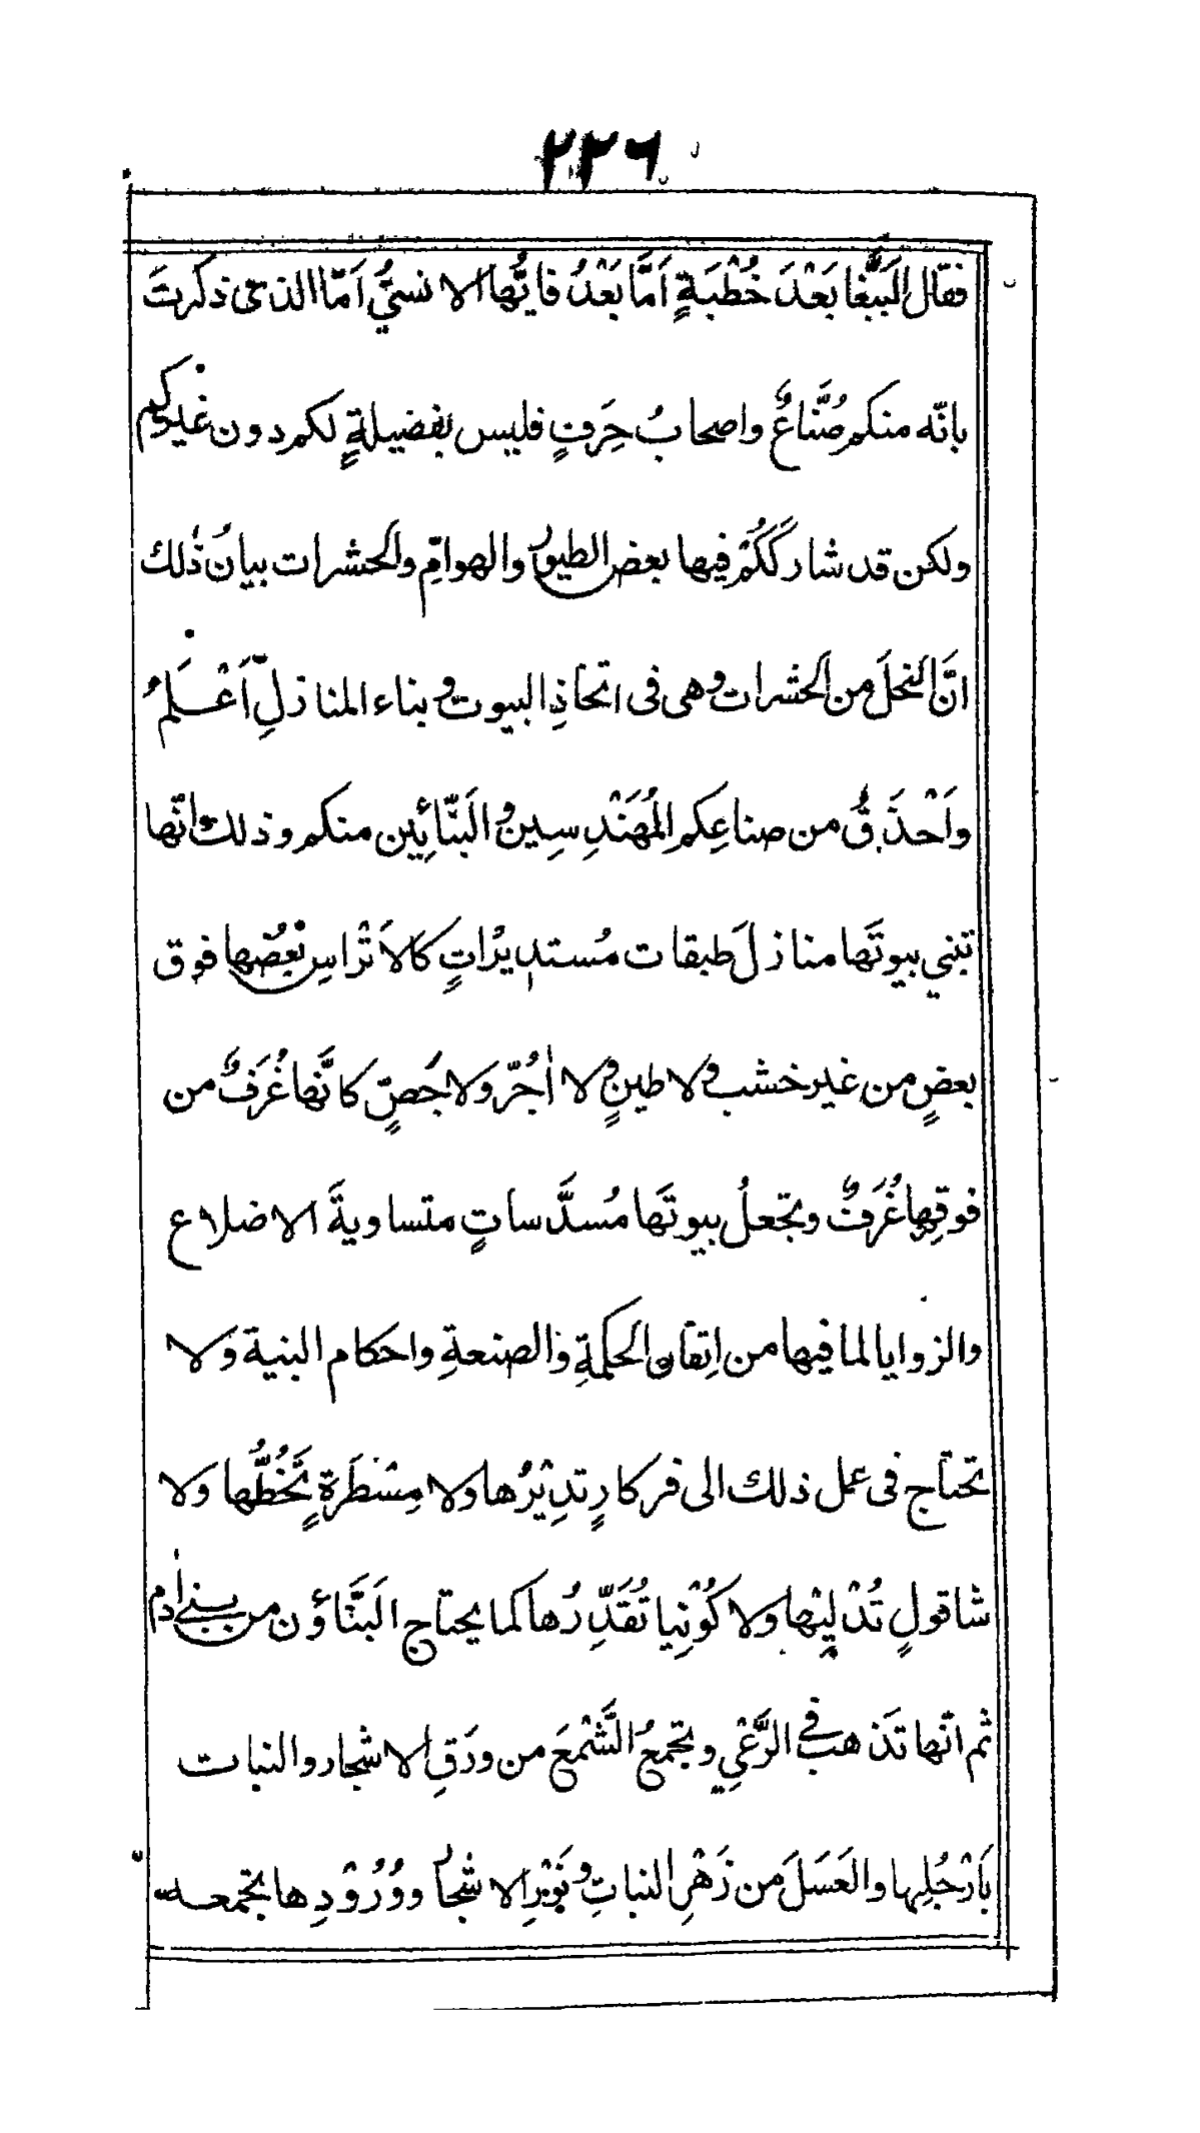 ٢٢٦
فقال البَبَّغا بَعْدَ خُطْبَةٍ اَمَّا بَعْدُ فايُّها الانسيُّ اَمّا الذى ذكرتَ
بانّه منكم صُنَّاعٌ واصحابُ حِرَفٍ فليس بفضيلةٍ لكم دون غيركم
ولكن قد شاركَكُمْ فيها بعض الطيور والهوامِّ والحشرات بيانُ ذٰلك
انَّ النحلَ من الحشرات وهى فى اتخاذِ البيوت وبناء المنازلِ اَعْلَمُ
واَحْذَقُ من صناعِكم المُهَنْدِسِين والبَنّائِين منكم وذلك انّها
تبني بيوتَها منازلَ طبقات مُستديْراتٍ كالاَتْراسِ بعضُها فوق
بعضٍ من غير خشب ولا طينٍ ولا اٰجُرّ ولا جَصٍّ كانَّها غُرَفٌ من
فوقِها غُرَفٌ وتجعلُ بيوتَها مُسدَّساتٍ متساويةَ الاضلاع
والزوايا لما فيها من اِتقان الحكمةِ والصنعةِ واحكام البنية ولا
تحتاج فى عمل ذلك الى فركارٍ تدِيْرُها ولا مِسْطَرَةٍ تَخُطُّها ولا
شاقولٍ تُدْلِيْها ولا كُوْنِيا تُقَدِّرُها كما يحتاج البَنَّاؤن من بنى اٰدم
ثم انّها تَذهب في الرَّعْيِ وتجمعُ الشَّمْعَ من ورَقِ الاشجار والنبات
بَارْجُلِها والعَسَلَ من زَهْرِ النباتِ ونَوْرِ الاشجار ووُرُوْدِها تجمعه